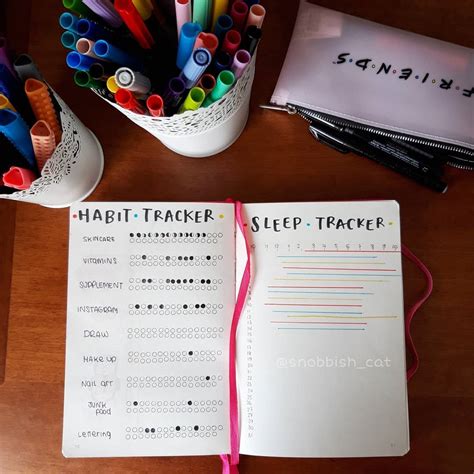 F•R•I•E•N•D•S
•HABIT•TRACKER•
SKINCARE
VITAMINS
SUPPLEMENT
INSTAGRAM
DRAW
MAKE UP
NAIL ART
JUNK FOOD
LETTERING
•SLEEP•TRACKER•
@snobbish_cat